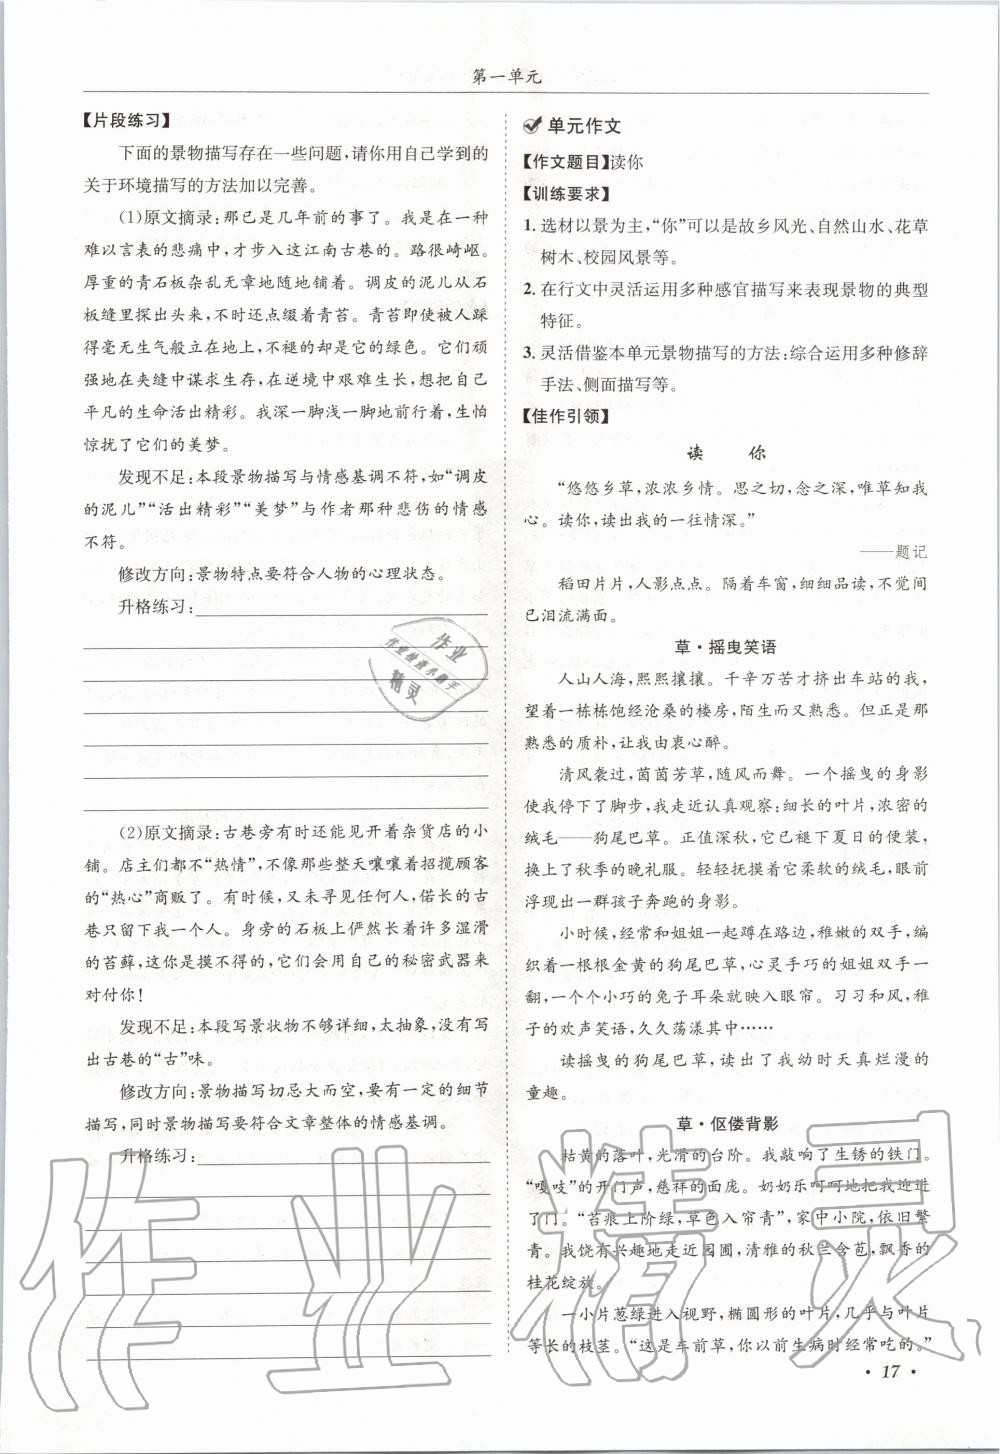 第一单元
【片段练习】
下面的景物描写存在一些问题,请你用自己学到的
关于环境描写的方法加以完善。
(1)原文摘录:那已是几年前的事了。我是在一种
难以言表的悲痛中,才步入这江南古巷的。路很崎岖。
厚重的青石板杂乱无章地随地铺着。调皮的泥儿从石
板缝里探出头来,不时还点缀着青苔。青苔即使被人踩
得毫无生气般立在地上,不褪的却是它的绿色。它们顽
强地在夹缝中谋求生存,在逆境中艰难生长,想把自己
平凡的生命活出精彩。我深一脚浅一脚地前行着,生怕
惊扰了它们的美梦。
发现不足:本段景物描写与情感基调不符,如“调皮
的泥儿”“活出精彩”“美梦”与作者那种悲伤的情感
不符。
修改方向:景物特点要符合人物的心理状态。
升格练习:
(2)原文摘录:古巷旁有时还能见开着杂货店的小
铺。店主们都不“热情”,不像那些整天嚷嚷着招揽顾客
的“热心”商贩了。有时候,又未寻见任何人,偌长的古
巷只留下我一个人。身旁的石板上俨然长着许多湿滑
的苔藓,这你是摸不得的,它们会用自己的秘密武器来
对付你!
发现不足:本段写景状物不够详细,太抽象,没有写
出古巷的“古”味。
修改方向:景物描写切忌大而空,要有一定的细节
描写,同时景物描写要符合文章整体的情感基调。
升格练习:
单元作文
【作文题目】读你
【训练要求】
1. 选材以景为主,“你”可以是故乡风光、自然山水、花草
树木、校园风景等。
2. 在行文中灵活运用多种感官描写来表现景物的典型
特征。
3. 灵活借鉴本单元景物描写的方法:综合运用多种修辞
手法、侧面描写等。
【佳作引领】
读 你
“悠悠乡草,浓浓乡情。思之切,念之深,唯草知我
心。读你,读出我的一往情深。”
——题记
稻田片片,人影点点。隔着车窗,细细品读,不觉间
已泪流满面。
草·摇曳笑语
人山人海,熙熙攘攘。千辛万苦才挤出车站的我,
望着一栋栋饱经沧桑的楼房,陌生而又熟悉。但正是那
熟悉的质朴,让我由衷心醉。
清风袭过,茵茵芳草,随风而舞。一个摇曳的身影
使我停下了脚步,我走近认真观察:细长的叶片,浓密的
绒毛——狗尾巴草。正值深秋,它已褪下夏日的便装,
换上了秋季的晚礼服。轻轻抚摸着它柔软的绒毛,眼前
浮现出一群孩子奔跑的身影。
小时候,经常和姐姐一起蹲在路边,稚嫩的双手,编
织着一根根金黄的狗尾巴草,心灵手巧的姐姐双手一
翻,一个个小巧的兔子耳朵就映入眼帘。习习和风,稚
子的欢声笑语,久久荡漾其中……
读摇曳的狗尾巴草,读出了我幼时天真烂漫的
童趣。
草·伛偻背影
枯黄的落叶,光滑的台阶。我敲响了生锈的铁门。
“嘎吱”的开门声,慈祥的面庞。奶奶乐呵呵地把我迎进
了门。“苔痕上阶绿,草色入帘青”,家中小院,依旧繁
青。我饶有兴趣地走近园圃,清雅的秋兰含苞,飘香的
桂花绽放。
一小片葱绿进入视野,椭圆形的叶片,几乎与叶片
等长的枝茎。“这是车前草,你以前生病时经常吃的。”
· 17 ·
作业
作业检查小助手
精灵
作业精灵